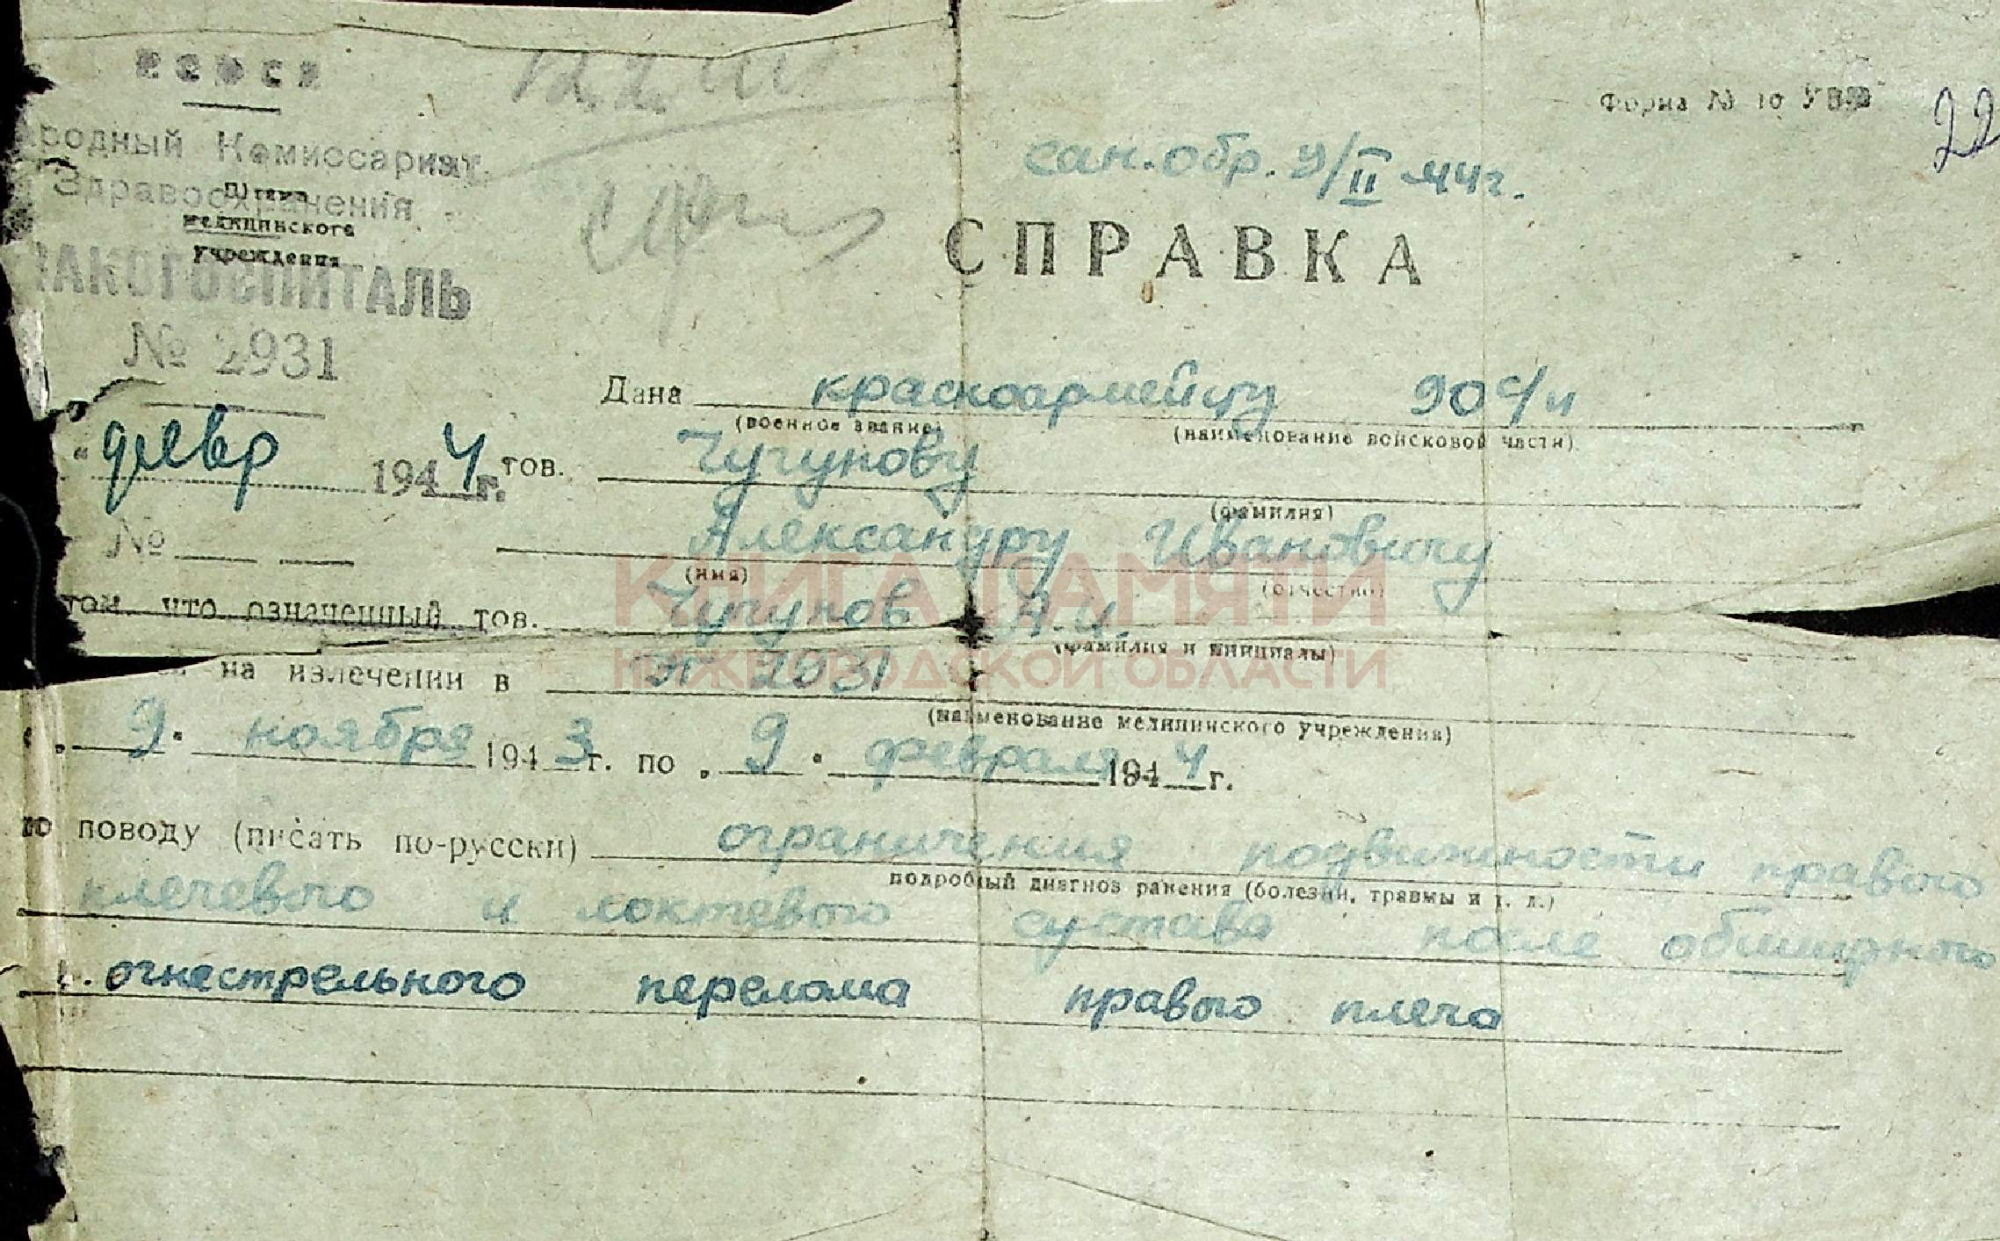 РСФСР
родный Комиссариат
Здравоохранения
Штамп
медицинского
учреждения
ВАКОГОСПИТАЛЬ
№ 2931
февр 1944 г.
№
Форма № 16 УВ
22
сан. обр. 9/II 44 г.
СПРАВКА
Дана красноармейцу 90 с/п
(военное звание) (наименование войсковой части)
тов. Чугунову
(фамилия)
Александру Ивановичу
(имя) (отчество)
том, что означенный тов. Чугунов А.И.
(фамилия и инициалы)
на излечении в ЭГ 2931
(наименование медицинского учреждения)
с „9" ноября 1943 г. по „9" февраля 1944 г.
по поводу (писать по-русски) ограничения подвижности правого
подробный диагноз ранения (болезни, травмы и т. д.)
плечевого и локтевого сустава после обширного
огнестрельного перелома правого плеча
КНИГА ПАМЯТИ
НИЖЕГОРОДСКОЙ ОБЛАСТИ